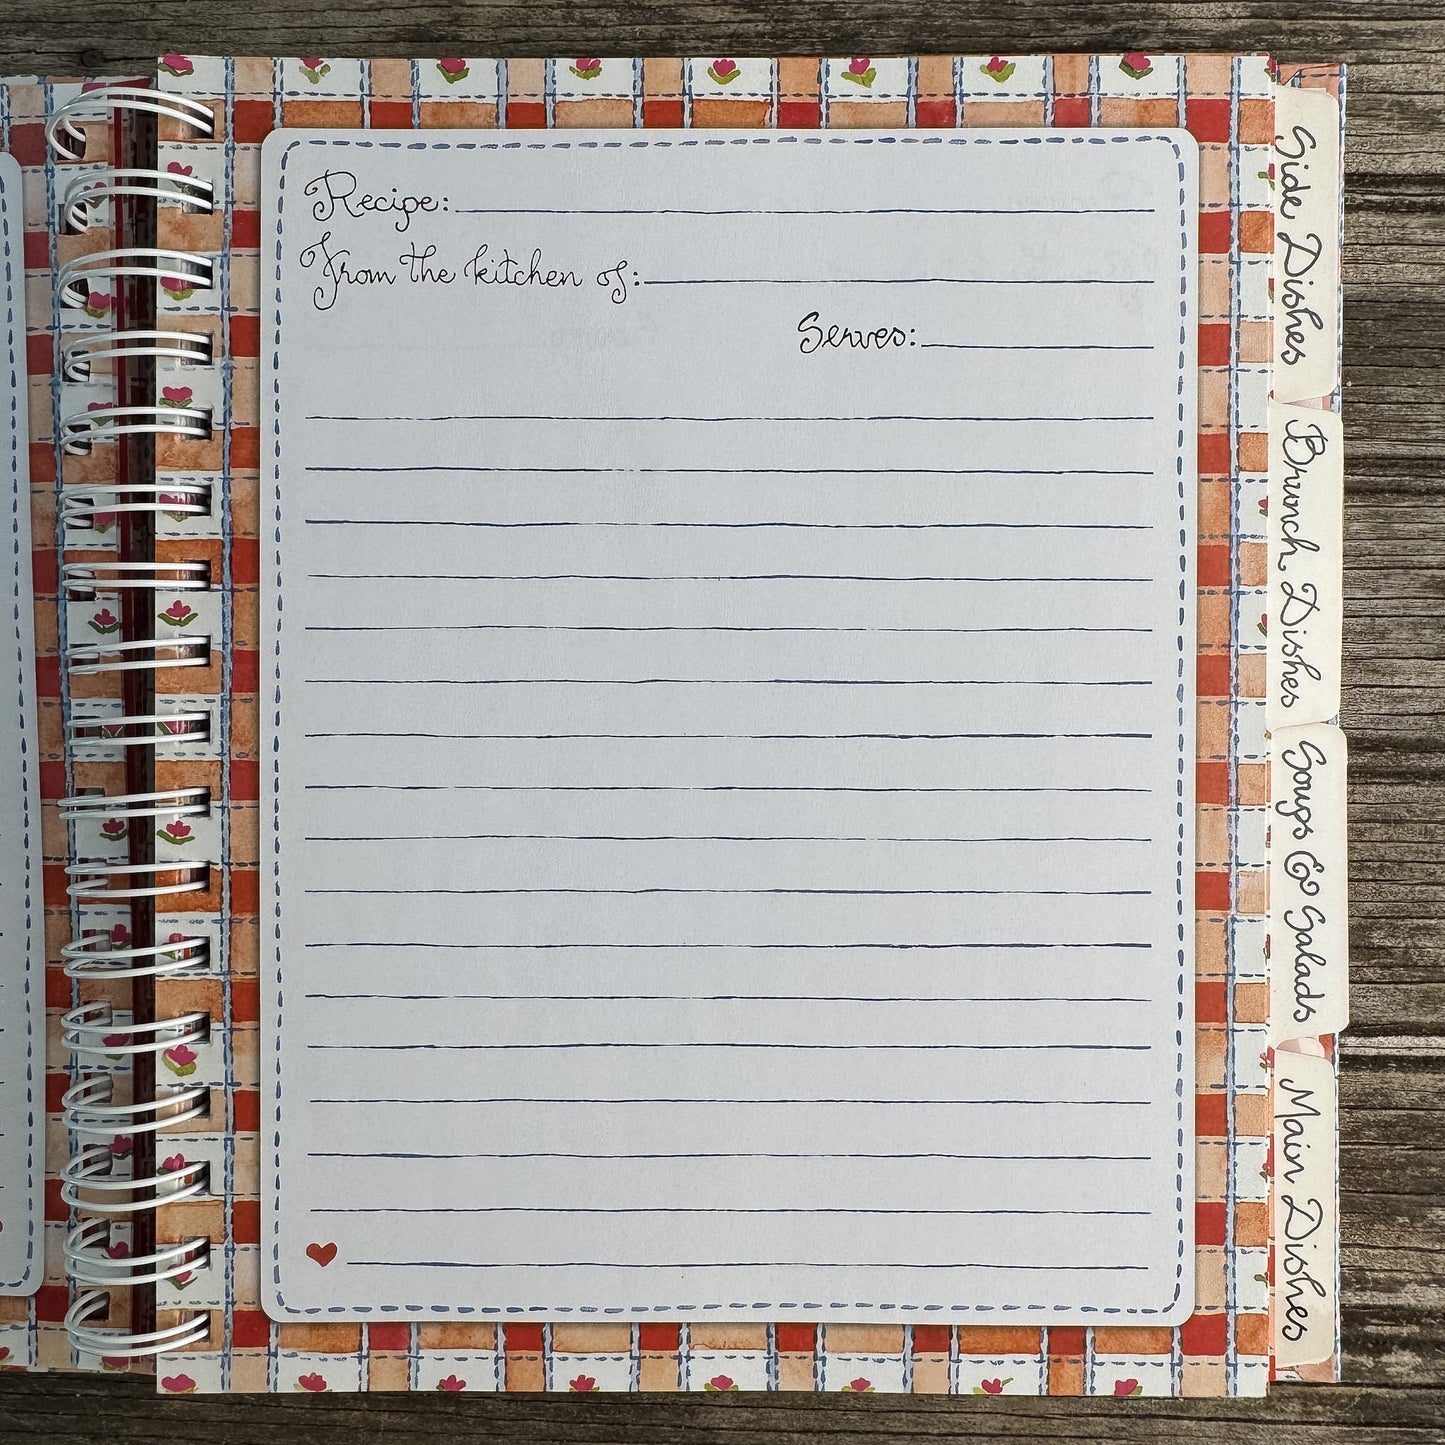 Recipe:
From the kitchen of:
Serves:
Side Dishes
Brunch Dishes
Soups & Salads
Main Dishes